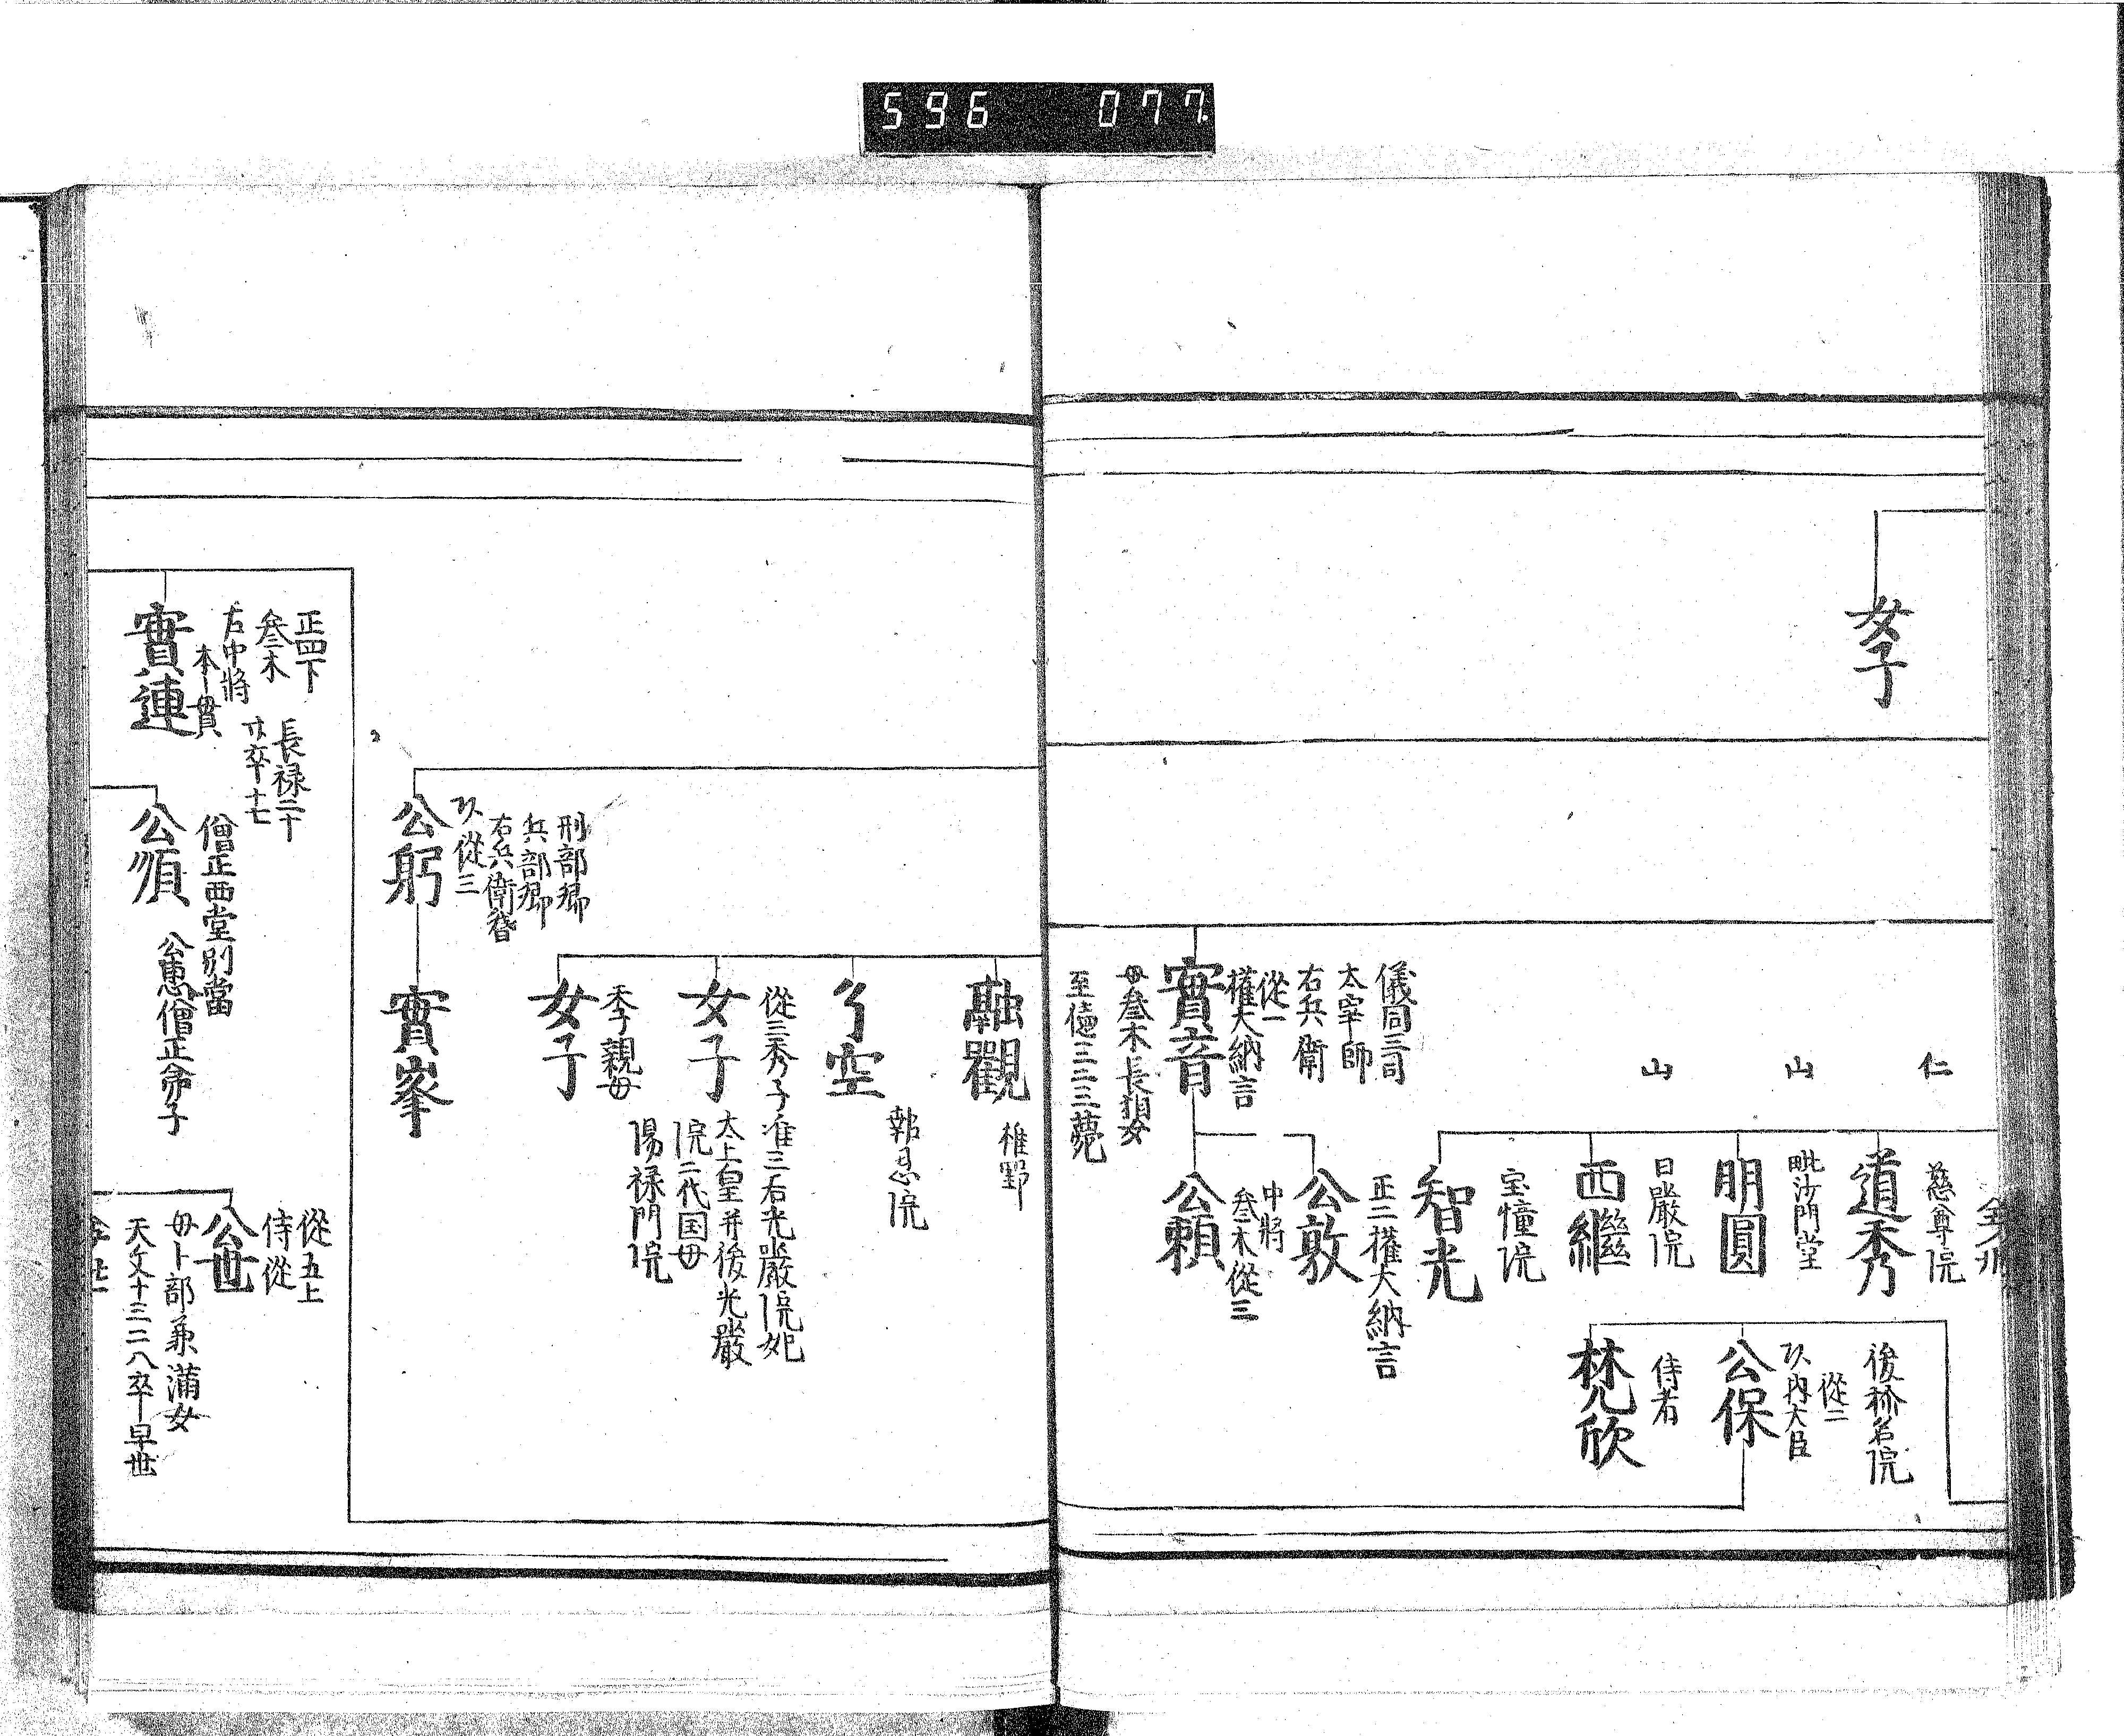 596 077
女子
仁
慈尊院
道秀
山
毗沙門堂
明圓
山
日嚴院
西繼
宝憧院
智光
後称名院
從二
内大臣
公保
侍者
梵欣
儀同三司
太宰師
右兵衛
從一
權大納言
實音
母叄木長損女
至德三二三薨
正二權大納言
公敦
中將
叄木從三
公頼
融觀
椎野
空
報恩院
從三秀子准三右光嚴院妃
太上皇并後光嚴
院二代国母
陽禄門院
女子
季親母
女子
刑部卿
兵部卿
右兵衛督
從三
公躬
實峯
正四下
叄木
右中將
本貫
長禄二十
卒十七
實連
僧正西堂別當
公惠僧正弟子
公順
從五上
侍從
公世
母卜部兼満女
天文十三二八卒早世